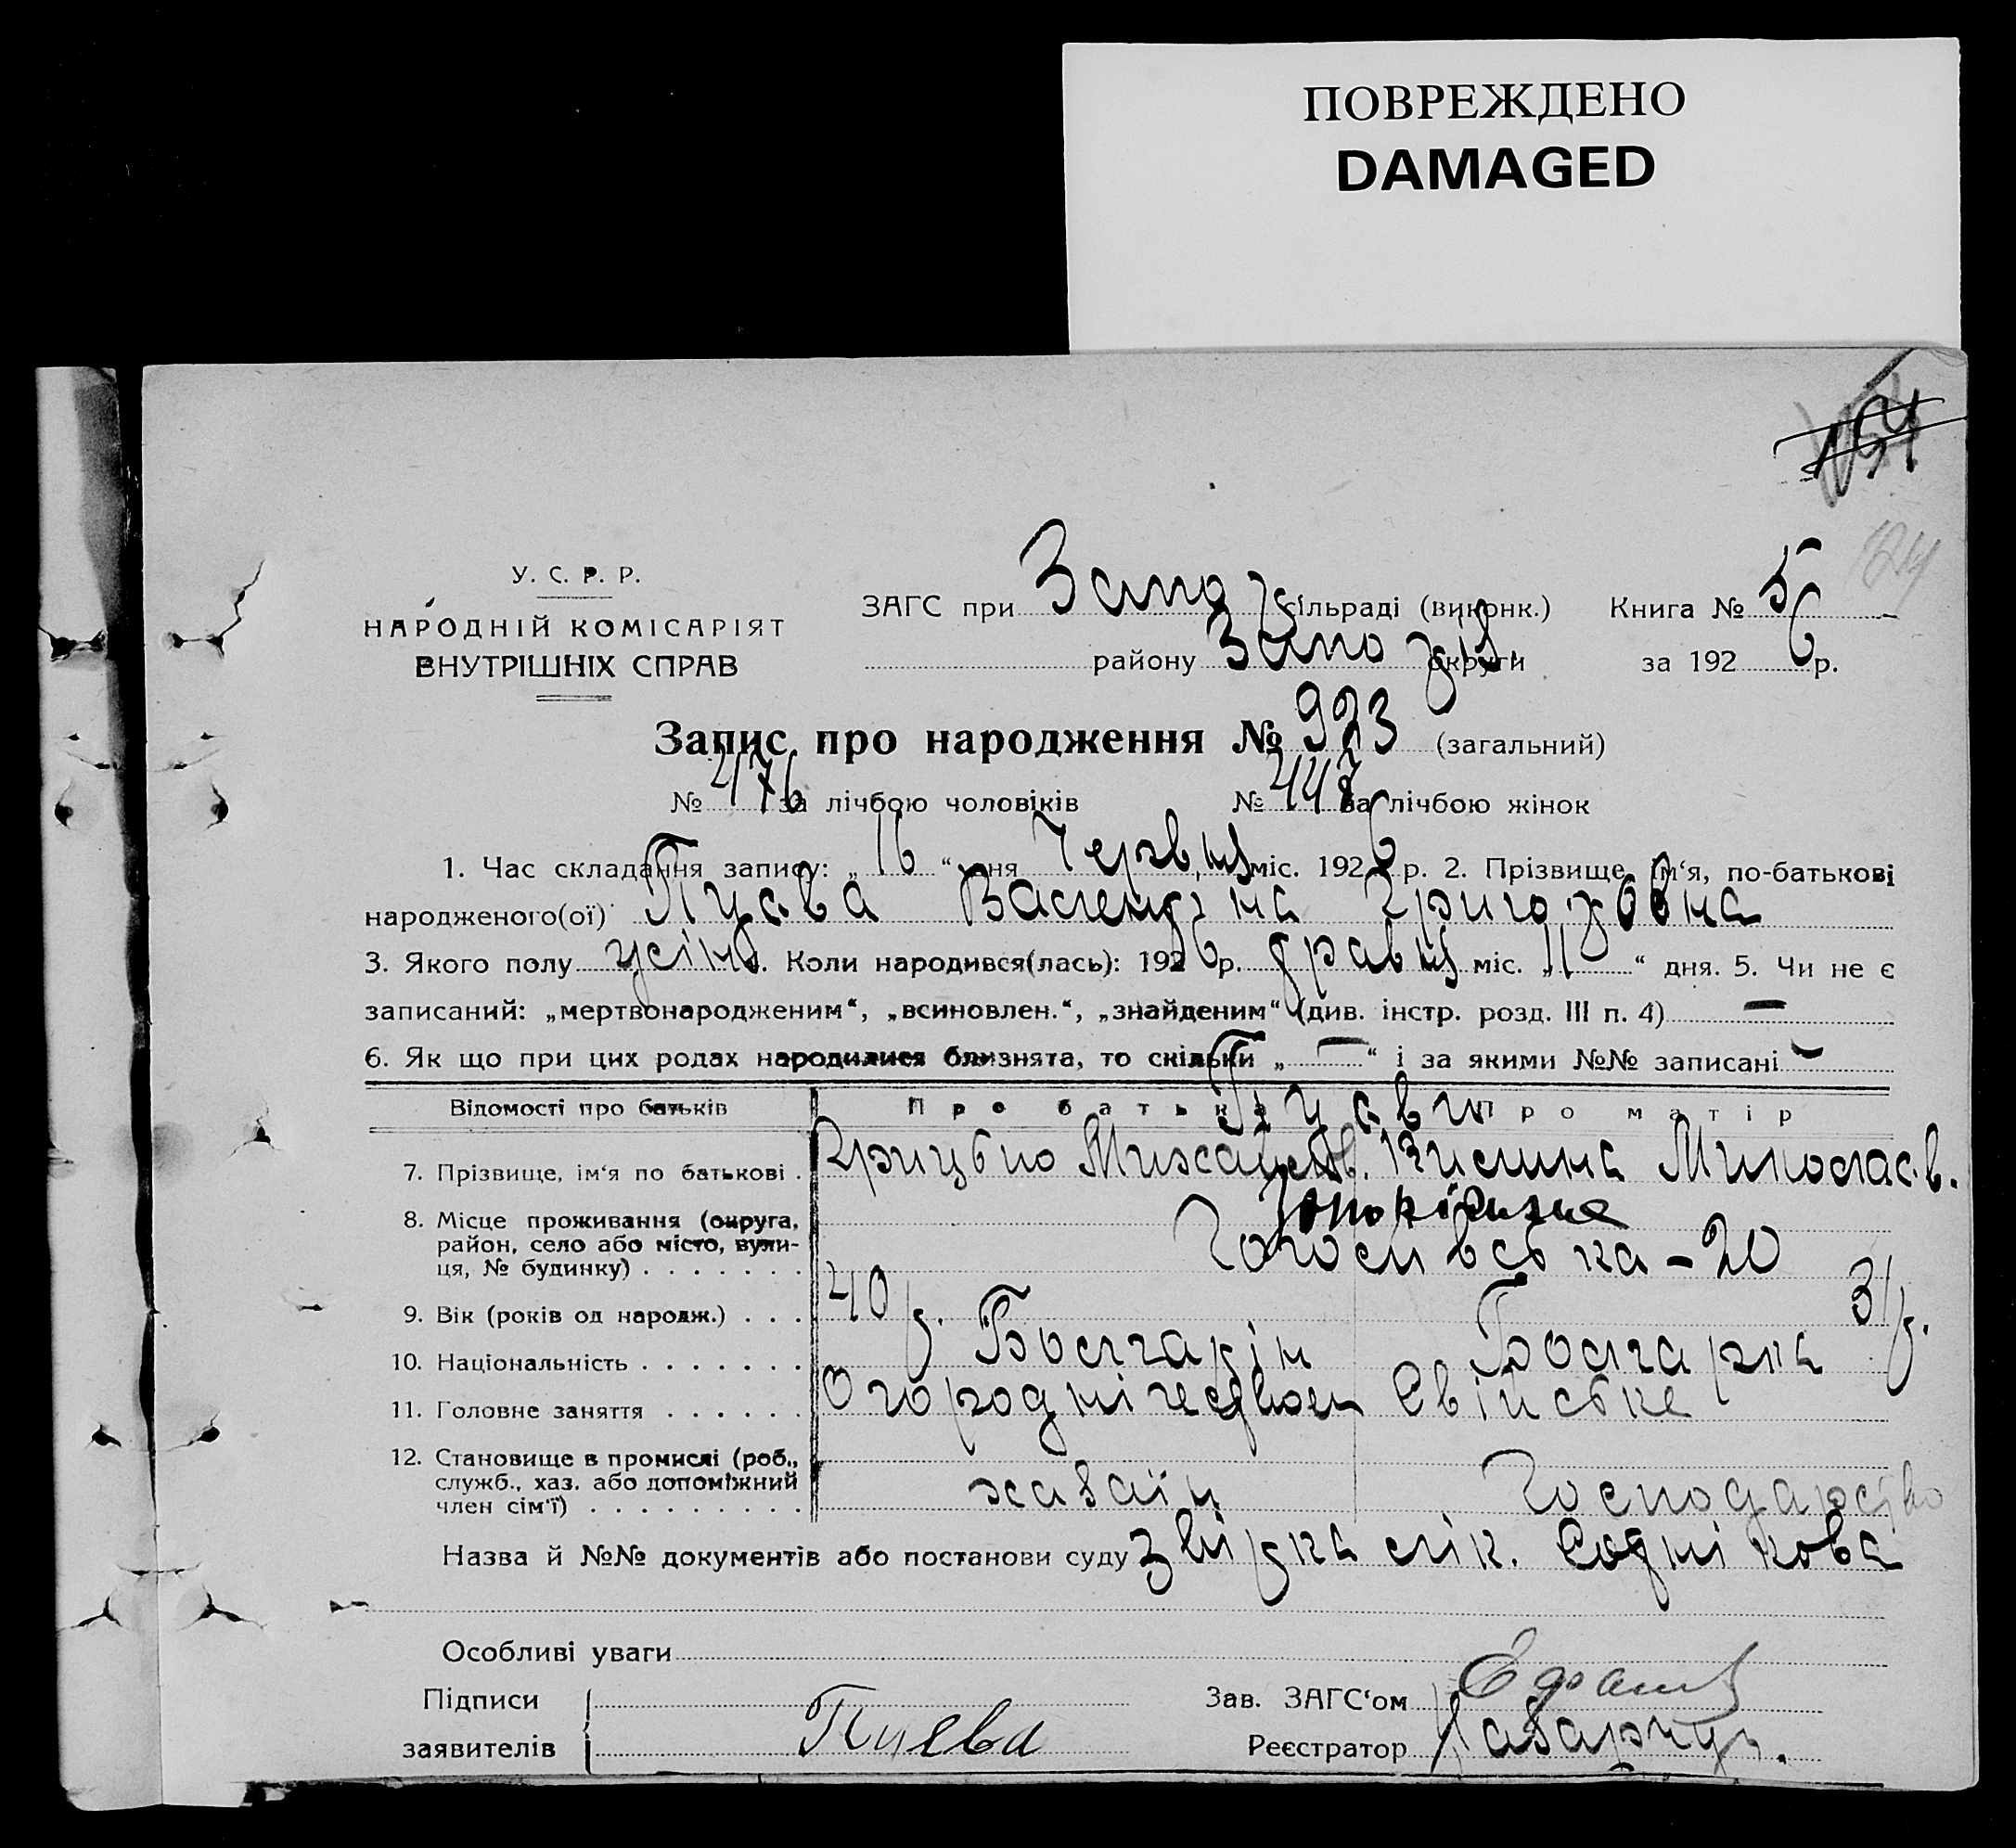 ПОВРЕЖДЕНО
DAMAGED
154
124
У. С. Р. Р.
НАРОДНІЙ КОМІСАРІЯТ
ВНУТРІШНІХ СПРАВ
ЗАГС при Запор сільраді (виконк.) Книга № 5
району Запоріз. округи за 1926 р.
Запис про народження № 923 (загальний)
№ 476 за лічбою чоловіків № 447 за лічбою жінок
1. Час складання запису: „16“ дня Червця міс. 1926 р. 2. Прізвище, ім‘я, по-батькові
народженого(ої) Пуєва Валентіна Григоровна
3. Якого полу жіноч. Коли народився(лась): 1926 р. травця міс. „11“ дня. 5. Чи не є
записаний: „мертвонародженим“, „всиновлен.“, „знайденим“ (див. інстр. розд. III п. 4) —
6. Як що при цих родах народилися близнята, то скільки „—“ і за якими №№ записані —
Відомості про батьків Про батька Про матір
Пуєви
7. Прізвище, ім‘я по батькові . Грицько Михайлов. Килина Миколаєв.
8. Місце проживання (округа, район, село або місто, вули-ця, № будинку) . . . . . . . Запоріжжє
Гоголівська - 20
9. Вік (років од народж.) . . . 40 р. 31 р.
10. Національність . . . . . . . Болгарін Болгарка
11. Головне заняття . . . . . . Огородничеством Свійське
12. Становище в промислі (роб.,
служб., хаз. або допоміжний
член сім‘ї) . . . . . . . . . хазаїн Господарство
Назва й №№ документів або постанови суду звірка лік.
Особливі уваги
Підписи Зав. ЗАГС‘ом
заявителів Пуева Реєстратор